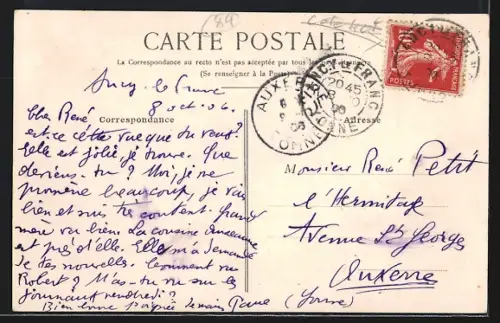 (89)
CARTE POSTALE
La Correspondance au recto n'est pas acceptée par tous les
(Se renseigner à la Poste)
Ancy le Franc
8 oct. 06.
Correspondance
Adresse
AUXERRE
YONNE
ANCY-LE-FRANC
YONNE
Cher René
est ce cette vue que tu veux?
Elle est jolie, je trouve. Que
deviens-tu? Moi, je me
promène beaucoup, je vais
bien et suis très content. Grand
mère va bien. La cousine
est près d'elle. Elle m'a demandé
de tes nouvelles. Comment va
Robert? M'as-tu vu sur les
journaux vendredi?
Bien bonne poignée de main
Monsieur René Petit
l'Hermitage
Avenue St Georges
Auxerre
(Yonne)